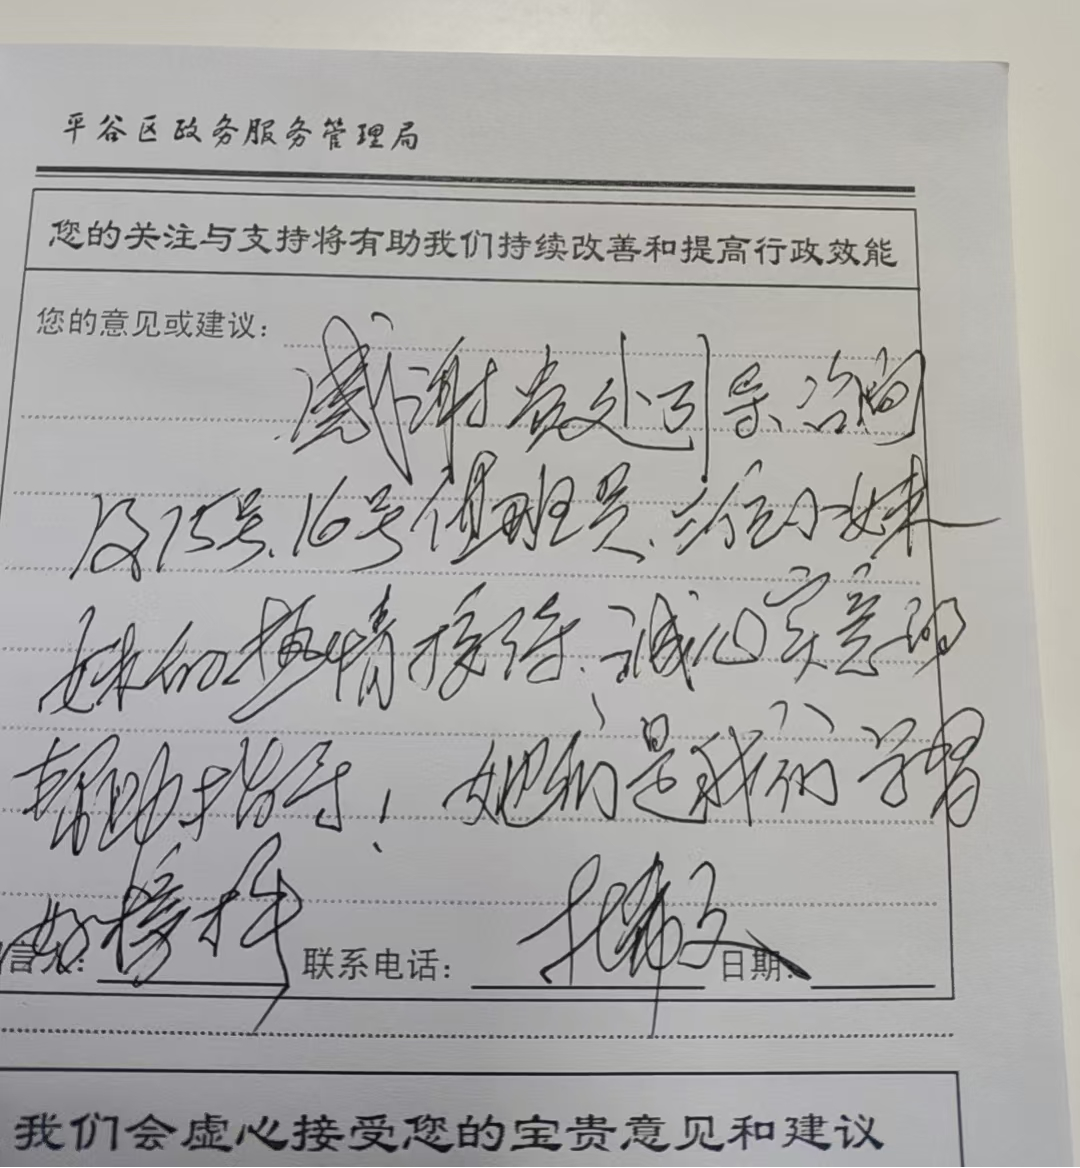 平谷区政务服务管理局
您的关注与支持将有助我们持续改善和提高行政效能
您的意见或建议：
感谢贵处引导、咨询
及15号、16号值班员、三位小妹
妹的热情接待、诚心实意的
帮助指导！她们是我们的学习
好榜样
联系电话：
日期：
我们会虚心接受您的宝贵意见和建议